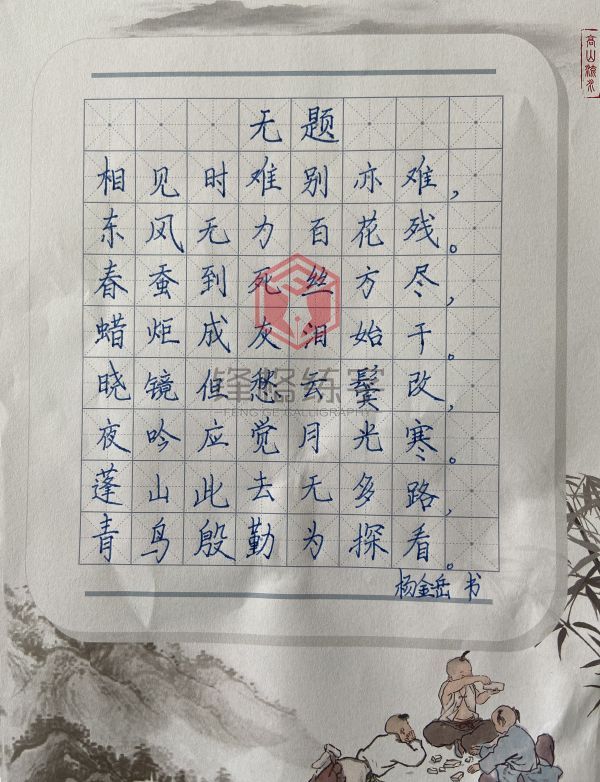 无题
相见时难别亦难，
东风无力百花残。
春蚕到死丝方尽，
蜡炬成灰泪始干。
晓镜但愁云鬓改，
夜吟应觉月光寒。
蓬山此去无多路，
青鸟殷勤为探看。
杨金岳 书
高山流水
锋格练字
FENG GE CALLIGRAPHY